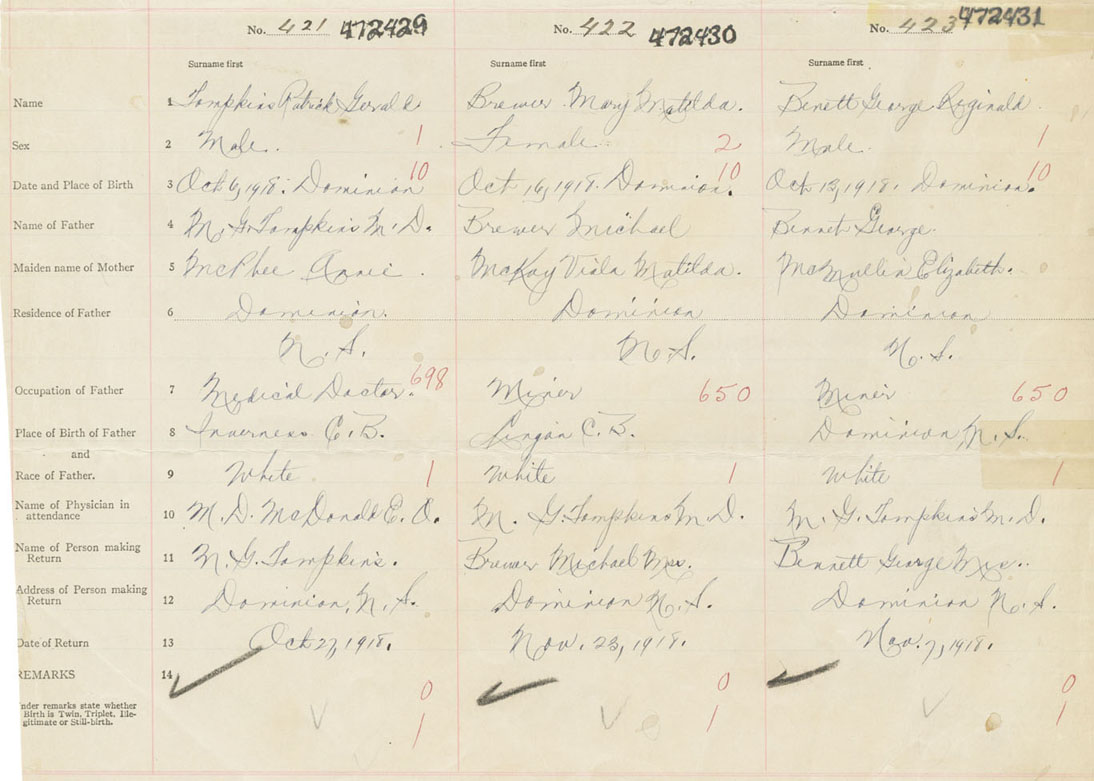 No. 421 472429 No. 422 472430 No. 423 472431
Surname first Surname first Surname first
Name 1 Tompkins Patrick Gerald Brewer Mary Matilda. Benett George Reginald.
Sex 2 Male. 1 Female. 2 Male. 1
10 10 10
Date and Place of Birth 3 Oct 6, 1918. Dominion Oct 16, 1918. Dominion. Oct 13, 1918. Dominion.
Name of Father 4 M. G. Tompkins M. D. Brewer Michael Bennet George.
Maiden name of Mother 5 McPhee Annie. McKay Viola Matilda. McMullin Elizabeth.
Residence of Father 6 Dominion. Dominion Dominion
N. S. N. S. N. S.
Occupation of Father 7 Medical Doctor. 698 Miner 650 Miner 650
Place of Birth of Father 8 Inverness C. B. Lingan C. B. Dominion N. S.
and
Race of Father. 9 White 1 White 1 White 1
Name of Physician in
attendance 10 M. D. McDonald M. G. Tompkins M. D. M. G. Tompkins M. D.
Name of Person making
Return 11 M. G. Tompkins. Brewer Michael Mrs. Bennett George Mrs.
Address of Person making
Return 12 Dominion, N. S. Dominion N. S. Dominion N. S.
Date of Return 13 Oct 27, 1918. Nov. 23, 1918. Nov. 7, 1918.
REMARKS 14
0 0 0
Under remarks state whether
Birth is Twin, Triplet, Ille-
gitimate or Still-birth. 1 1 1